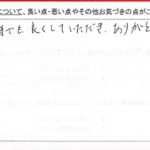 について、良い点・悪い点やその他お気づきの点がご
時でも、良くしていただき、ありがと